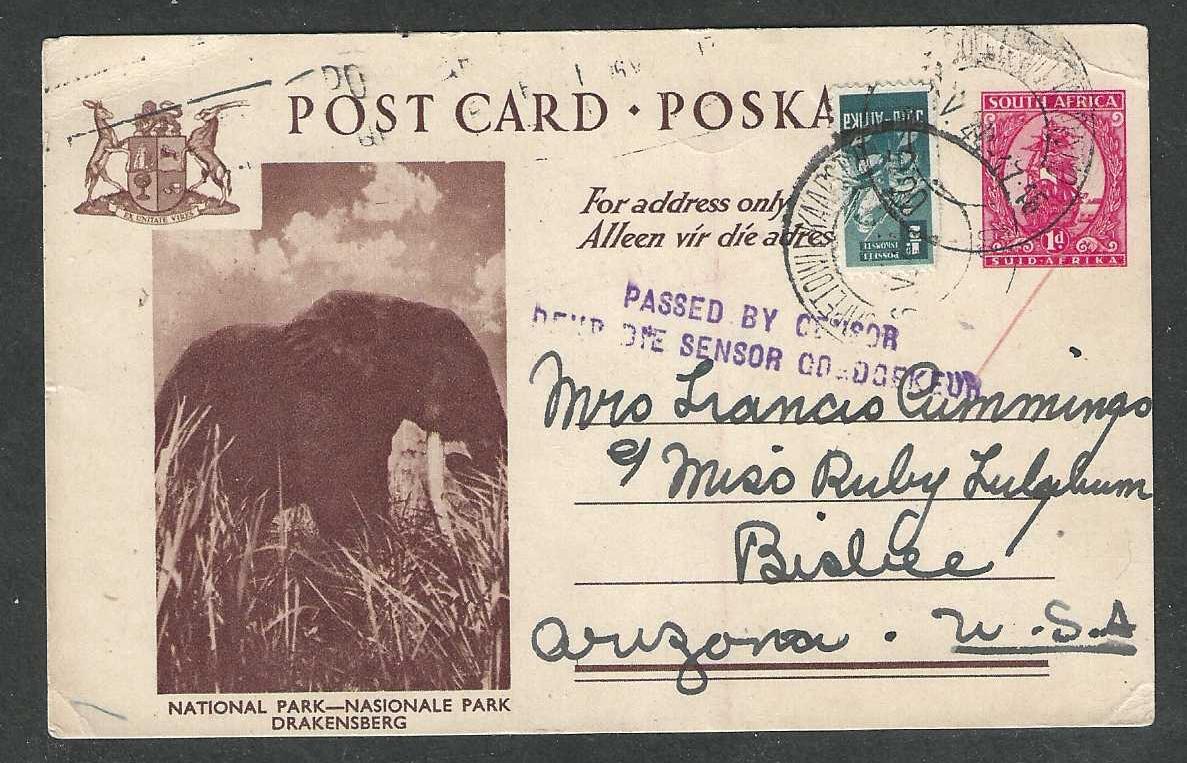 POST CARD · POSKA
SOUTH AFRICA
1d
SUID-AFRIKA
Suid-Afrika
EX UNITATE VIRES
For address only
Alleen vir die adres
PASSED BY CENSOR
DEUR DIE SENSOR GOEDGEKEUR
Mrs Francis Cummings
c/ Miss Ruby
Bisbee
Arizona. U.S.A
NATIONAL PARK—NASIONALE PARK
DRAKENSBERG